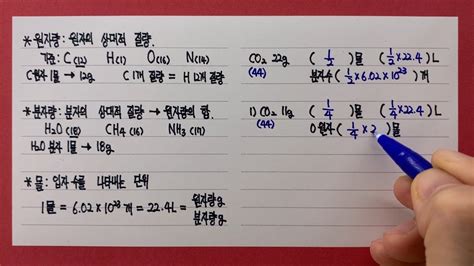 * 원자량: 원자의 상대적 질량.
기준: C(12) H(1) O(16) N(14)
C원자 1몰 → 12g C 1개 질량 = H 12개 질량
* 분자량: 분자의 상대적 질량 → 원자량의 합.
H₂O(18) CH₄(16) NH₃(17)
H₂O 분자 1몰 → 18g
* 몰: 입자 수를 나타내는 단위
1몰 = 6.02 × 10²³ 개 = 22.4L = 원자량g/분자량g
CO₂ 22g ( 1/2 )몰 ( 1/2 × 22.4 ) L
(44) 분자수 ( 1/2 × 6.02 × 10²³ ) 개
1) CO₂ 11g ( 1/4 )몰 ( 1/4 × 22.4 ) L
(44) O 원자 ( 1/4 × 2 )몰